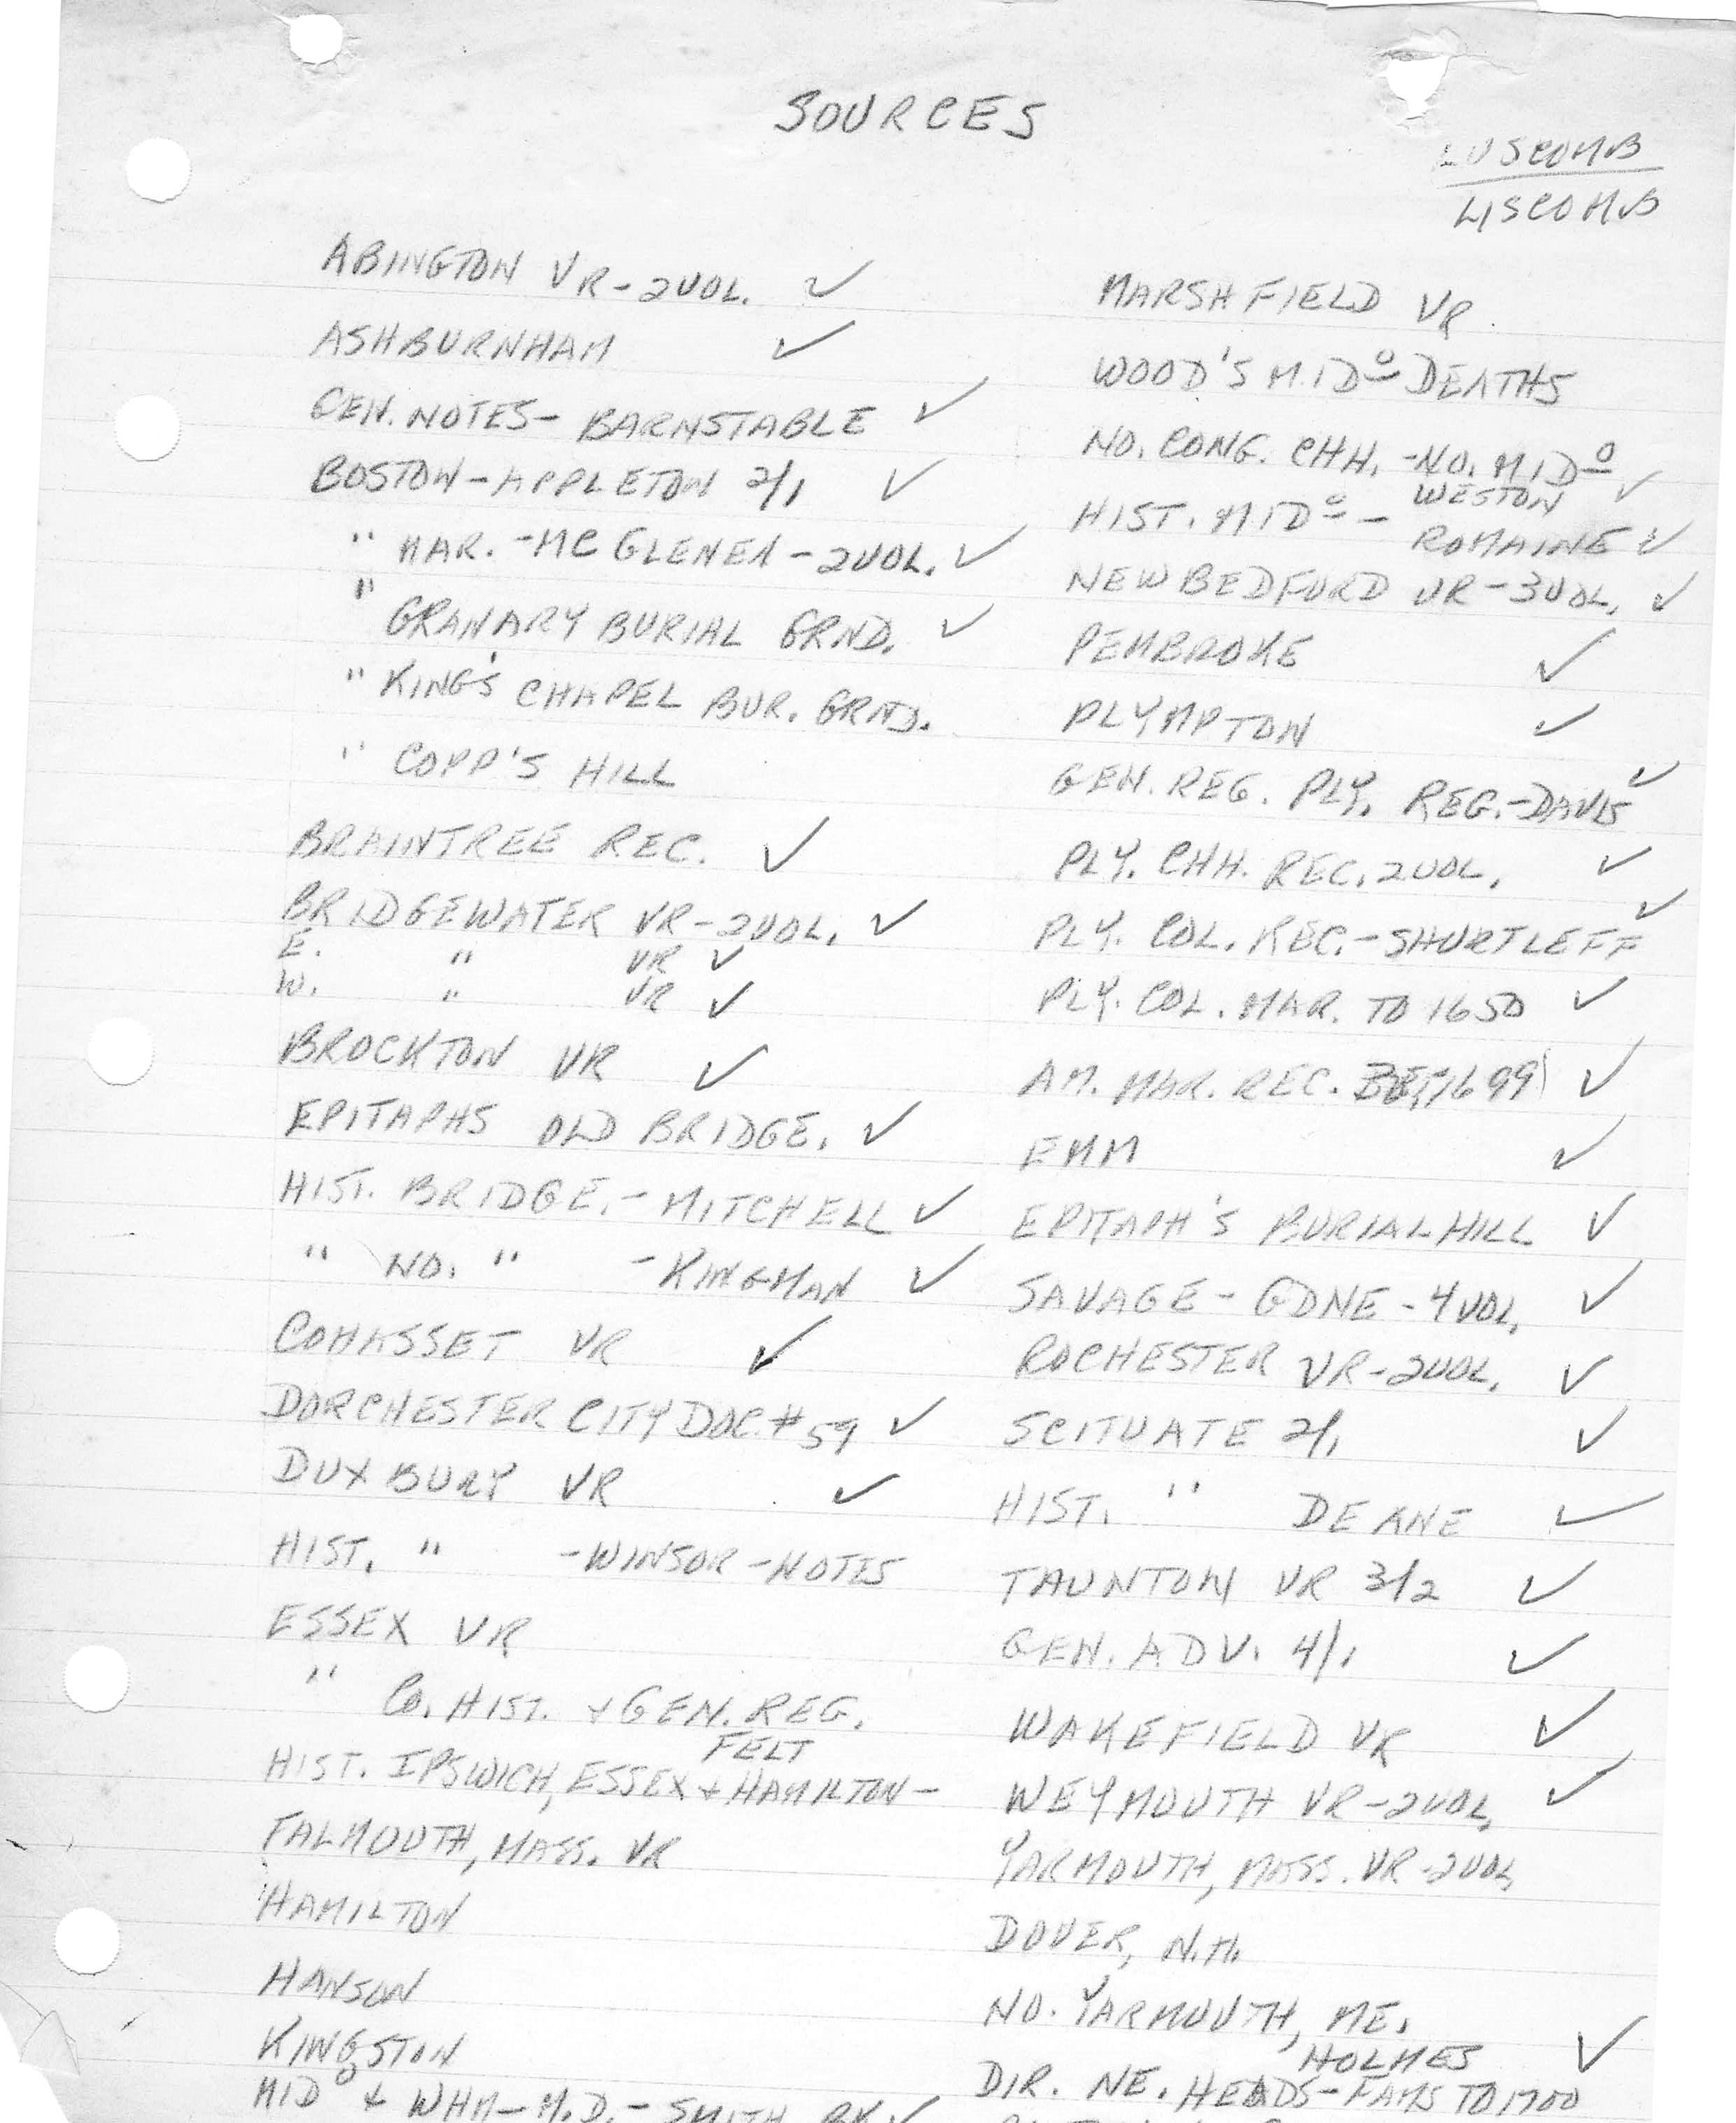 SOURCES
LUSCOMB
LISCOMB
ABINGTON VR - 2 VOL. ✓
ASHBURNHAM ✓
GEN. NOTES - BARNSTABLE ✓
BOSTON - APPLETON 2/1 ✓
" MAR. - MC GLENEN - 2 VOL. ✓
" GRANARY BURIAL GRND. ✓
" KING'S CHAPEL BUR. GRND.
" COPP'S HILL
BRAINTREE REC. ✓
BRIDGEWATER VR - 2 VOL. ✓
E. " VR ✓
W. " VR ✓
BROCKTON VR ✓
EPITAPHS OLD BRIDGE. ✓
HIST. BRIDGE. - MITCHELL ✓
" NO. " - KINGMAN ✓
COHASSET VR ✓
DORCHESTER CITY DOC. # 59 ✓
DUXBURY VR ✓
HIST. " - WINSOR - NOTES
ESSEX VR
" Co. HIST. + GEN. REG.
FELT
HIST. IPSWICH, ESSEX + HAMILTON -
FALMOUTH, MASS. VR
HAMILTON
HANSON
KINGSTON
MID o + WHM - M.D. - SMITH BK ✓
MARSHFIELD VR
WOOD'S MIDo DEATHS
NO. CONG. CHH. - NO. MIDo ✓
WESTON
HIST. MIDo - ROMAINE ✓
NEW BEDFORD VR - 3 VOL. ✓
PEMBROKE ✓
PLYMPTON ✓
GEN. REG. PLY. REG. - DAVIS ✓
PLY. CHH. REC. 2 VOL. ✓
PLY. COL. REC. - SHURTLEFF ✓
PLY. COL. MAR. TO 1650 ✓
AM. MAR. REC. BEF. 1699 ✓
EMM ✓
EPITAPH'S BURIAL HILL ✓
SAVAGE - GDNE - 4 VOL. ✓
ROCHESTER VR - 2 VOL. ✓
SCITUATE 2/1 ✓
HIST. " DEANE ✓
TAUNTON VR 3/2 ✓
GEN. ADV. 4/1 ✓
WAKEFIELD VR ✓
WEYMOUTH VR - 2 VOL. ✓
YARMOUTH, MASS. VR - 2 VOL.
DOVER, N.H.
NO. YARMOUTH, ME.
HOLMES ✓
DIR. NE. HEADS - FAMS TO 1700